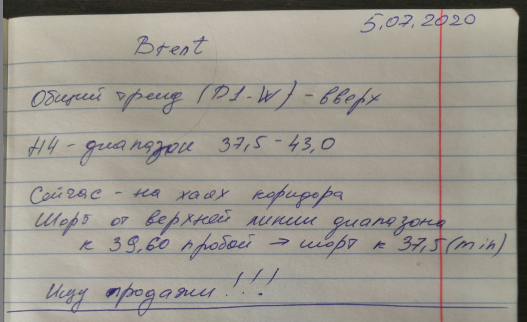 5.07.2020
Brent
Общий тренд (D1-W) - вверх
H4 - диапазон 37,5 - 43,0
Сейчас - на хаях коридора
Шорт от верхней линии диапазона
к 39,60 пробой → шорт к 37,5 (min)
Ищу продажи!!!